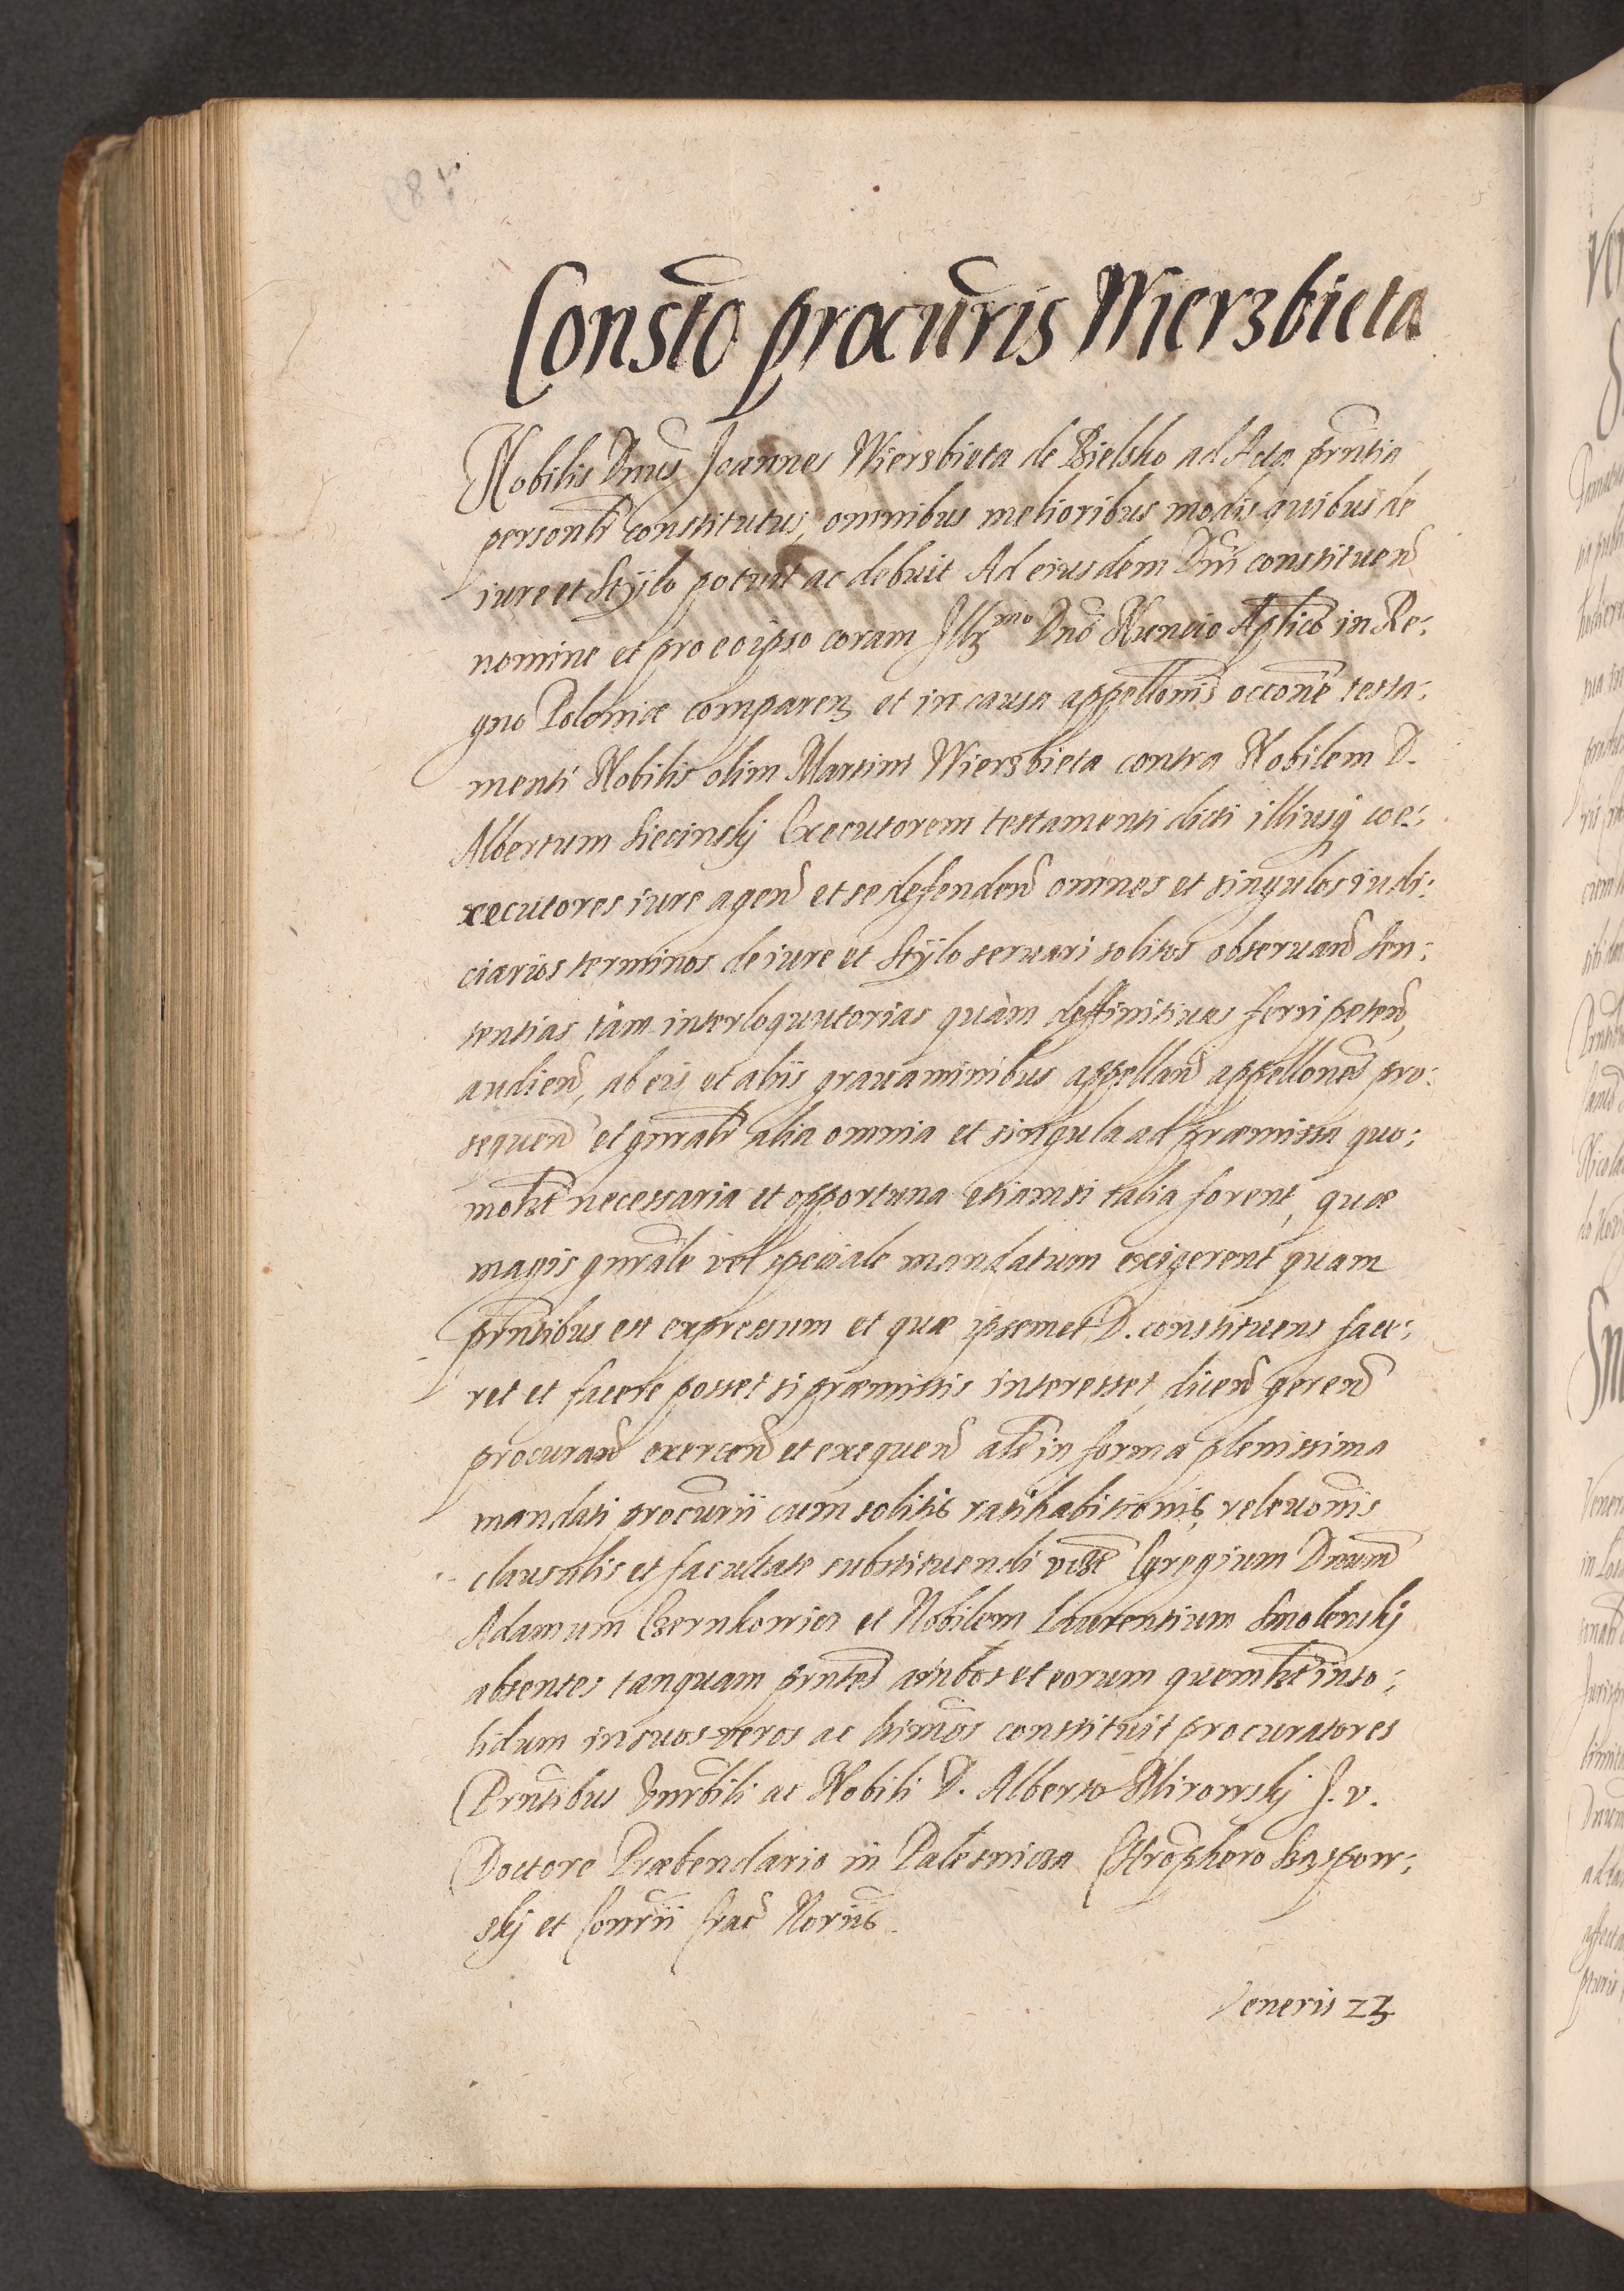 Consto procuris Wierzbieta
Nobilis Dnus Joannes Wierzbieta de Bielsko ad Acta prntia
personlr constitutus, omnibus melioribus modis quibus de
iure et Stÿlo potuit ac debuit Ad eiusdem Dni constituen
nomine et pro eo ipso coram Illmo Dno Nuncio Aplico in Re:
gno Poloniæ comparen et in causa appellonis occone testa:
menti Nobilis olim Martini Wierzbieta contra Nobilem D.
Albertum Siecinskj Executorem testamenti dicti illiusq coe:
xecutores iure agen et se defenden omnes et singulos iudi:
ciarios terminos de iure et Stÿlo seruari solitos obseruan sen:
tentias tàm interloquutorias quàm deffinitiuas ferri peten,
audien, ab eis et aliis grauaminibus appellan appellones pro:
sequen et gnralr alia omnia et singula ad præmissa quo:
molt necessaria et opportuna etiamsi talia forent, quæ
magis gnrale vel speciale mandatum exigerent quam
prntibus est expressum et quæ ipsemet D. constituens face:
ret et facere posset si præmissis interesset, dicen geren
procuran exercen et exequen als in forma plenissima
mandati procurii cum solitis ratihabitionis, releuonis
clausulis et facultate substituendi vigore Egregium Dnum
Adamum Czernkowicz et Nobilem Laurentium Smolenskj
absentes tanquam prntes ambos et eorum quemlt inso:
lidum in suos veros ac ltimos constituit procuratores
Prntibus Vnrbili ac Nobili D. Alberto Mirowskj J. v.
Doctore Præbendario in Palesnicza Chrophero Kaspow:
skj et Conrii Crac Noriis.
Veneris 23